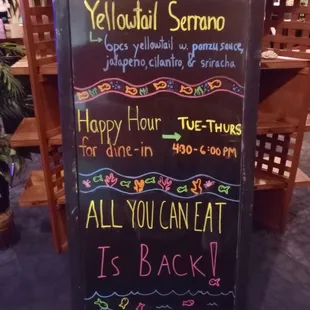 Yellowtail Serrano
6pcs yellowtail w. ponzu sauce,
jalapeño, cilantro, & sriracha
Happy Hour
for dine-in
TUE-THURS
4:30-6:00 PM
ALL YOU CAN EAT
IS BACK!